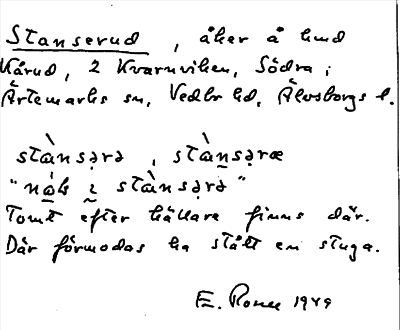 Stanserud, åker å hmd
Kårud, 2 Kvarnviken, Södra i
Ärtemarks sn, Vedbo hd, Älvsborgs l.
stànsərə, stànsəræ
"nɔ́k i stànsərə"
Tomt efter källare finns där.
Där förmodas ha stått en stuga.
E. 1949